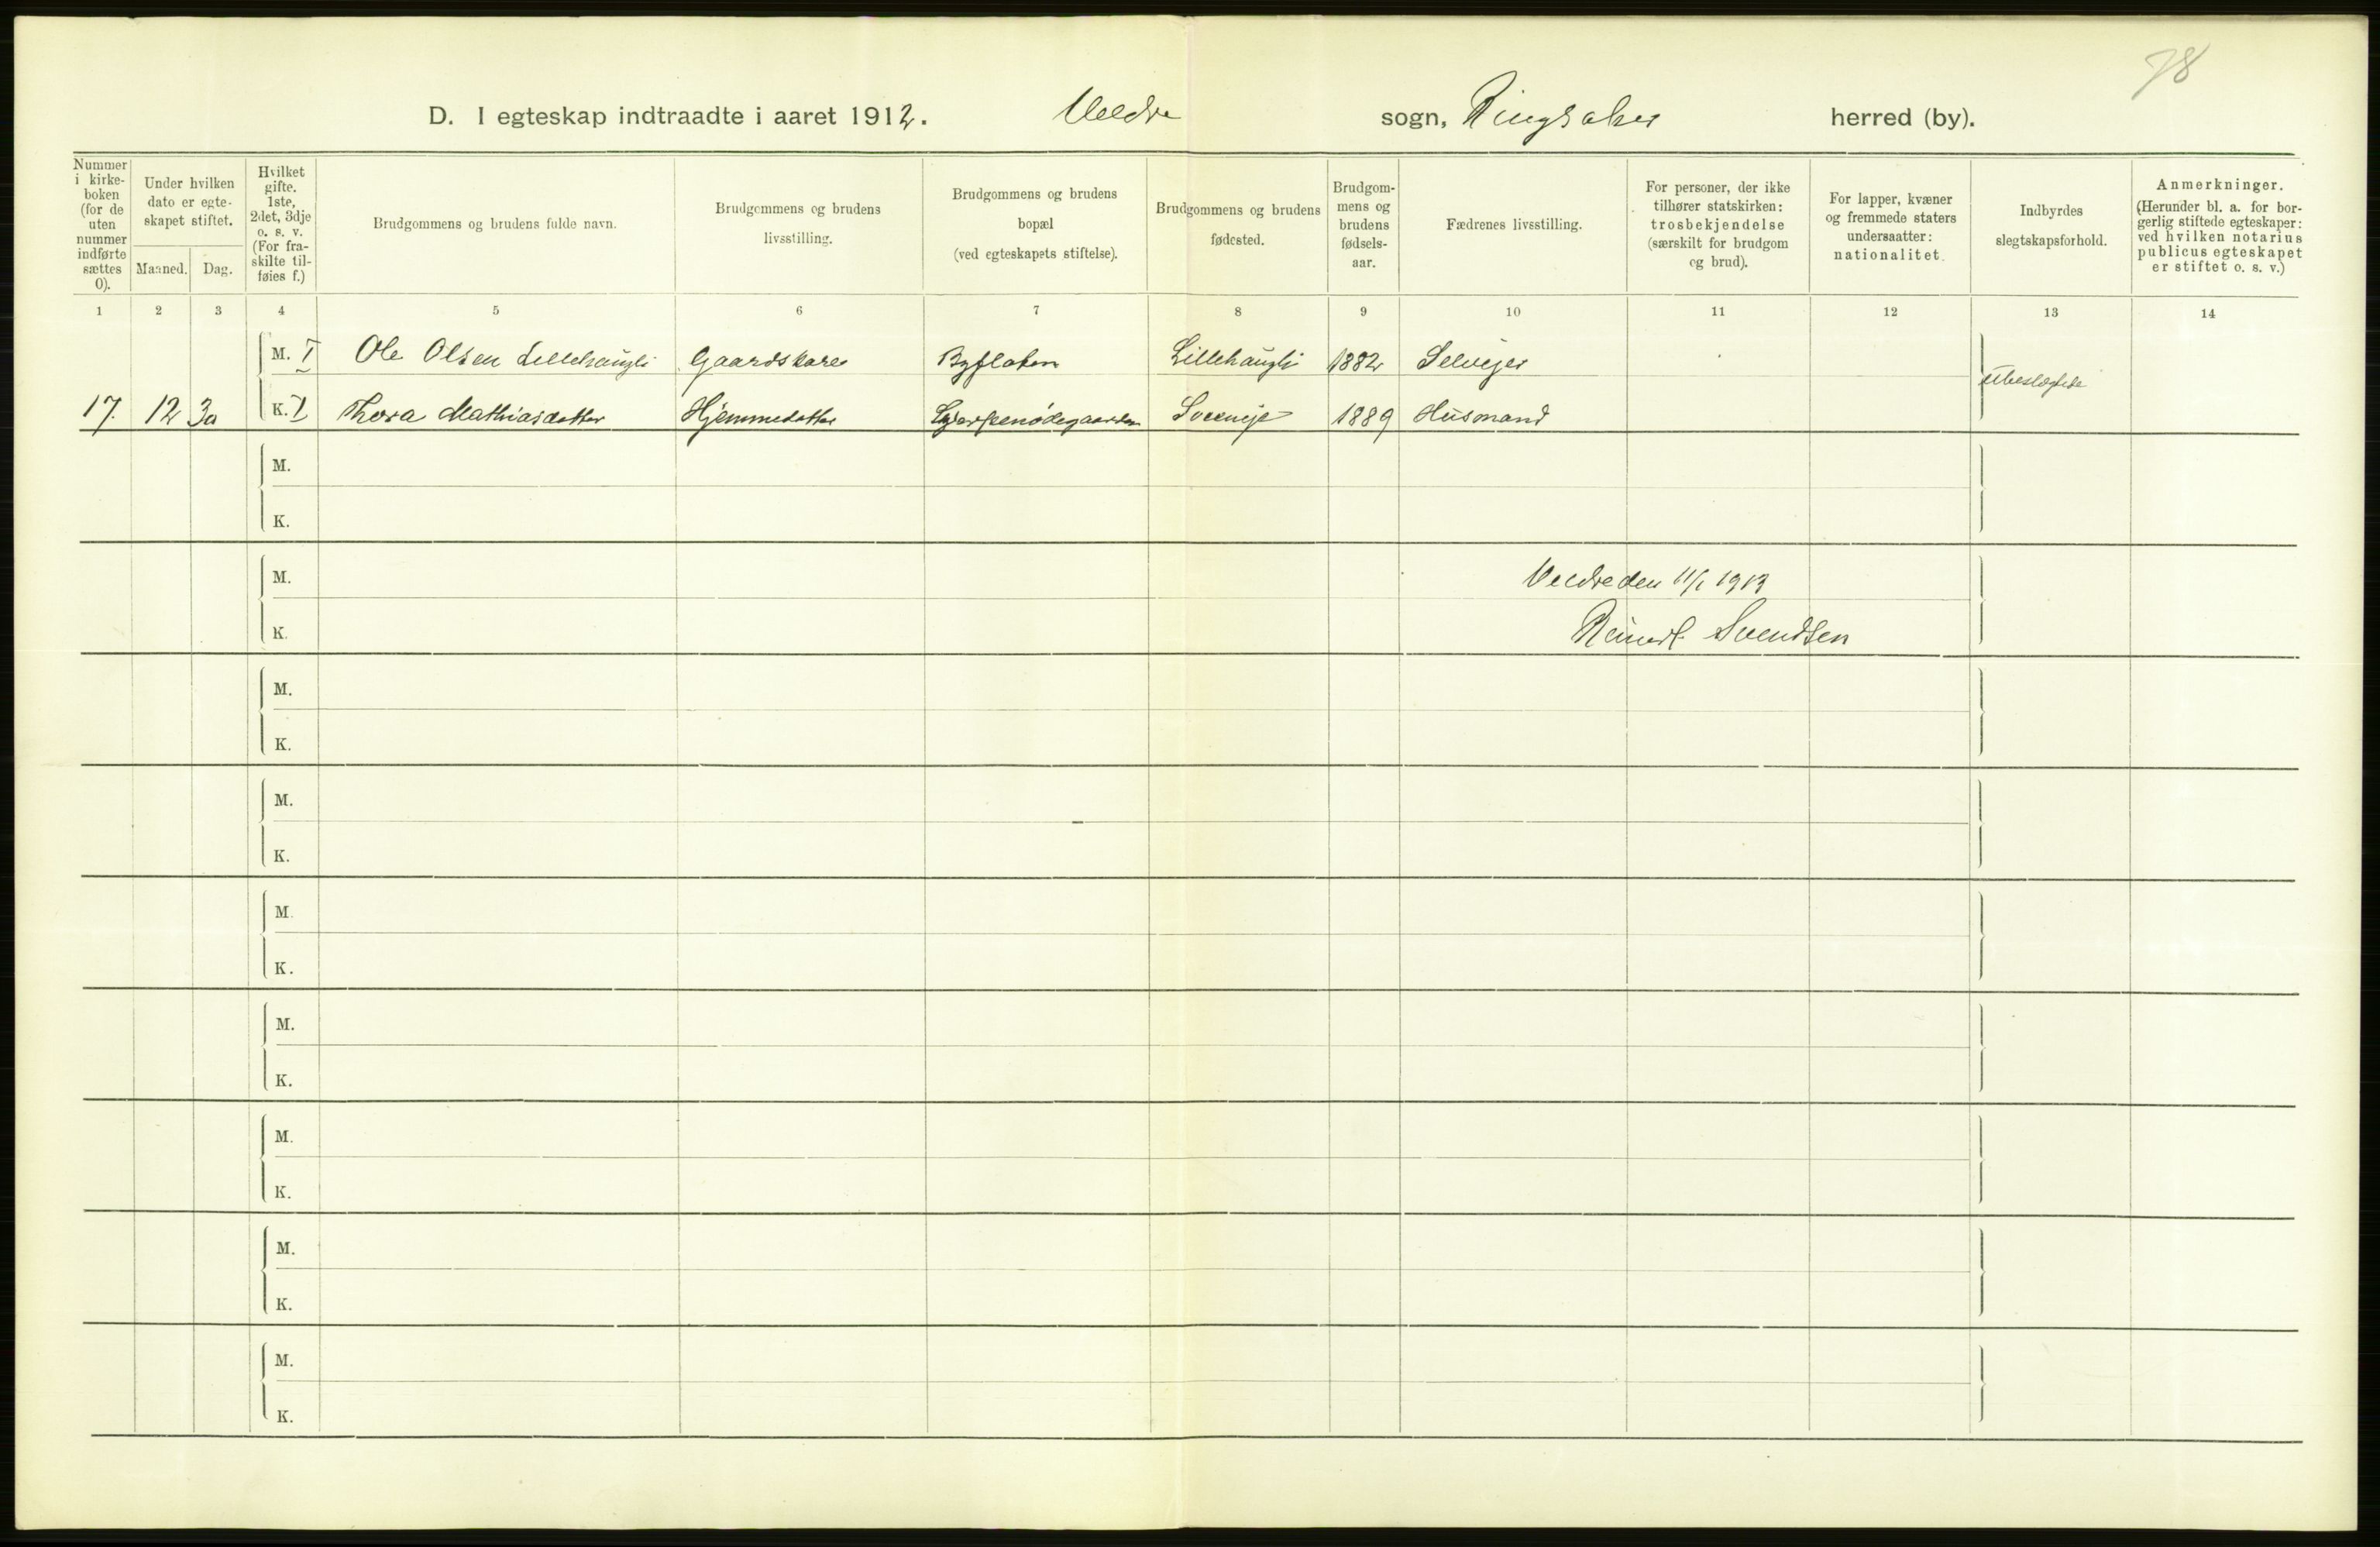 78
D. I egteskap indtraadte i aaret 1912. Veldre sogn, Ringsaker herred (by).
Nummer i kirke-boken (for de uten nummer indførte sættes 0).
Under hvilken dato er egte-skapet stiftet.
Maaned. Dag.
Hvilket gifte. 1ste, 2det, 3dje o. s. v. (For fra-skilte til-føies f.)
Brudgommens og brudens fulde navn.
Brudgommens og brudens livsstilling.
Brudgommens og brudens bopæl (ved egteskapets stiftelse).
Brudgommens og brudens fødested.
Brudgom-mens og brudens fødsels-aar.
Fædrenes livsstilling.
For personer, der ikke tilhører statskirken: trosbekjendelse (særskilt for brudgom og brud).
For lapper, kvæner og fremmede staters undersaatter: nationalitet.
Indbyrdes slegtskapsforhold.
Anmerkninger. (Herunder bl. a. for bor-gerlig stiftede egteskaper: ved hvilken notarius publicus egteskapet er stiftet o. s. v.)
1 2 3 4 5 6 7 8 9 10 11 12 13 14
M. I Ole Olsen Lillehaugli Gaardskarl Byflaten Lillehaugli 1882 Selvejer ubeslægtede
17. 12 30 K. I Thora Mathiasdatter Hjemmedatter Sveeneje 1889 Husmand
M.
K.
M. Veldre den 11/1 1913
K. Reinert Svendsen
M.
K.
M.
K.
M.
K.
M.
K.
M.
K.
M.
K.
M.
K.